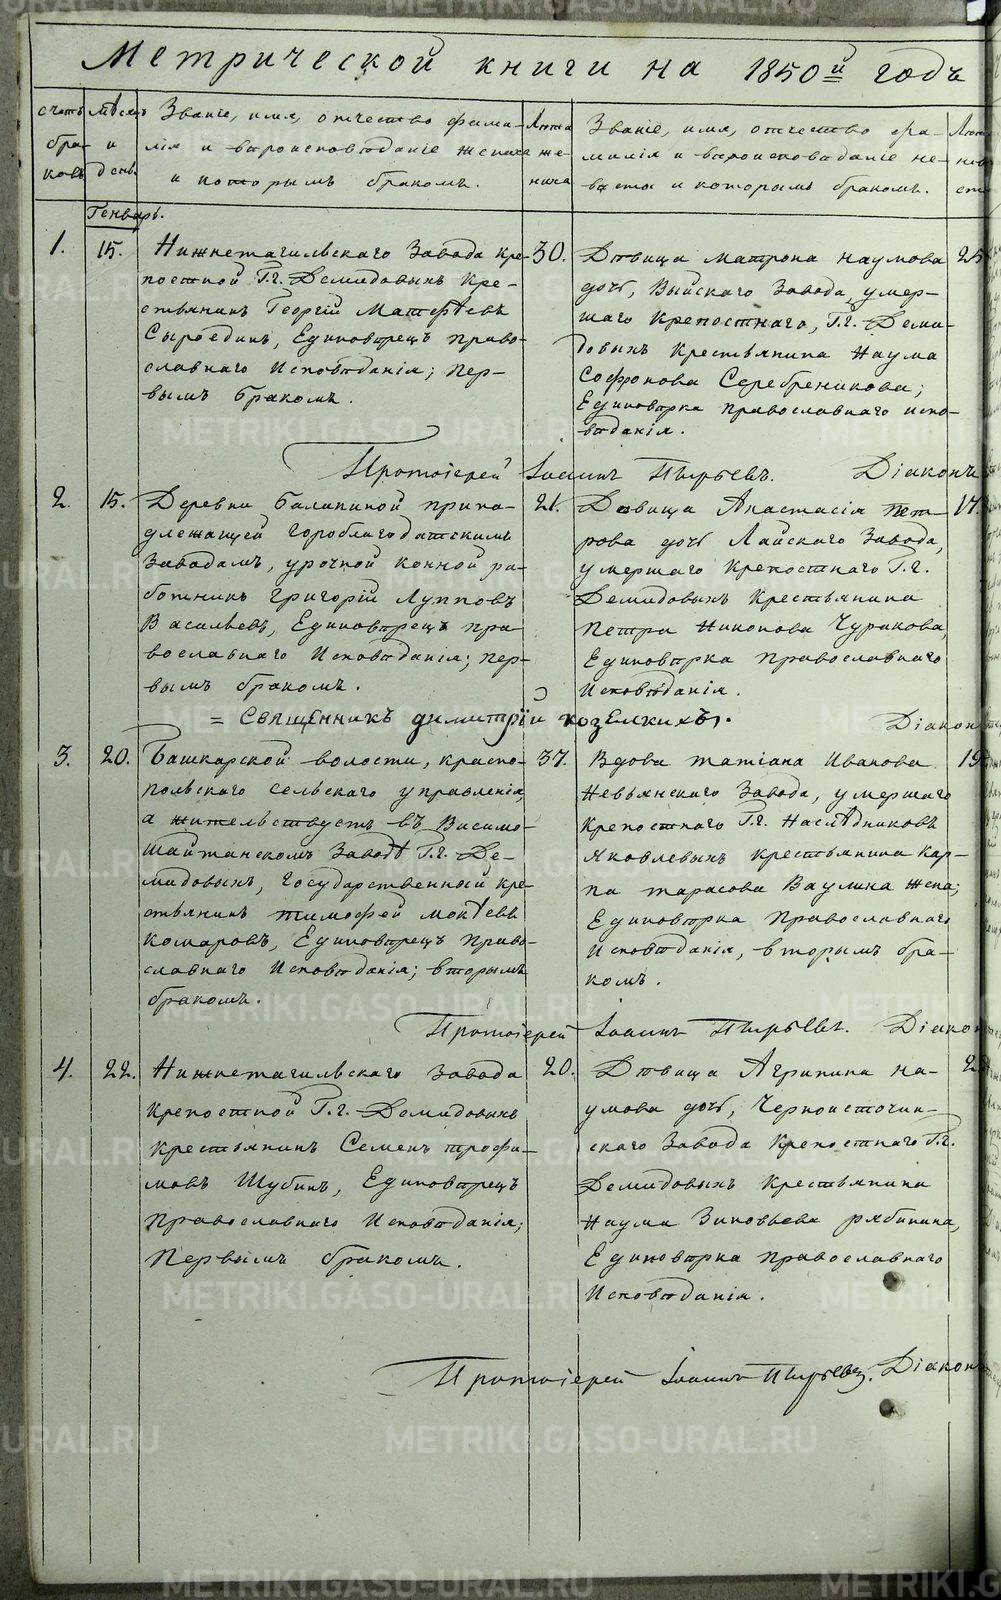 Метрической книги на 1850й годъ
счетъ браковъ
мѣсяцъ и день
Званіе, имя, отчество фами-
лія и вѣроисповѣданіе жениха
и которымъ бракомъ.
Лѣта же-
ниха
Званіе, имя, отчество фа-
милія и вѣроисповѣданіе не-
вѣсты и которымъ бракомъ.
Генварь.
1. 15.
Нижнетагильскаго Завода кре-
постной Г.г. Демидовыхъ Кре-
стьянинъ Георгій Матѳѣевъ
Сыроедин, Единовѣрецъ право-
славнаго Исповѣданія; пер-
вымъ бракомъ.
30.
Дѣвица Матрона Наумова
дочь, Выйскаго Завода, умер-
шаго Крепостнаго, Г.г. Деми-
довыхъ Крестьянина Наума
Софронова Серебреникова;
Единовѣрка православнаго испо-
вѣданія.
25
Протоіерей Іоаннъ Пырьевъ. Діаконъ
2. 15.
Деревни Балакиной прина-
длежащей Гороблагодатскимъ
Заводамъ, урочной конной ра-
ботникъ Григорій Лупповъ
Васильевъ, Единовѣрецъ пра-
вославнаго Исповѣданія; пер-
вымъ бракомъ.
21.
Дѣвица Анастасія Пет-
рова дочь Лайскаго Завода,
умершаго Крепостнаго Г.г.
Демидовыхъ Крестьянина
Петра Никонова Чуракова,
Единовѣрка православнаго
Исповѣданія.
17.
= Священникъ Димитрій Козелкихъ.
Діакон
3. 20.
Башкарской волости, красно-
польскаго сельскаго управленія,
а жительствуетъ въ Висимо-
Шайтанскомъ Заводѣ Г.г. Де-
мидовыхъ, Государственный кре-
стьянинъ Тимофей Мокѣевъ
Комаровъ, Единовѣрецъ Право-
славнаго Исповѣданія; вторымъ
бракомъ.
37.
Вдова Татіана Иванова
Невьянскаго Завода, умершаго
Крепостнаго Г.г. Наслѣдниковъ
Яковлевыхъ крестьянина Кар-
па Тарасова Ваулина жена;
Единовѣрка Православнаго
Исповѣданія, вторымъ бра-
комъ.
19
Протоіерей Іоаннъ Пырьевъ. Діакон
4. 22.
Нижнетагильскаго Завода
Крепостной Г.г. Демидовыхъ
Крестьянинъ Семенъ Трофи-
мовъ Шубинъ, Единовѣрецъ
Православнаго Исповѣданія;
Первымъ бракомъ.
20.
Дѣвица Агрипина На-
умова дочь, Черноисточин-
скаго Завода Крепостнаго Г.г.
Демидовыхъ Крестьянина
Наума Зиновьева Рябинина,
Единовѣрка православнаго
Исповѣданія.
Протоіерей Іоаннъ Пырьевъ. Діакон
METRIKI.GASO-URAL.RU